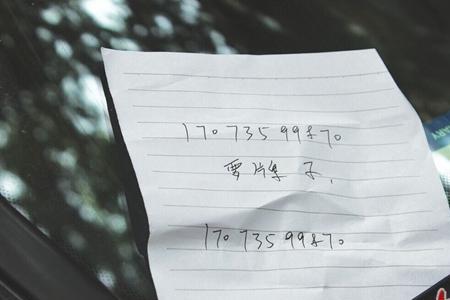 17073599870
要牌子.
17073599870